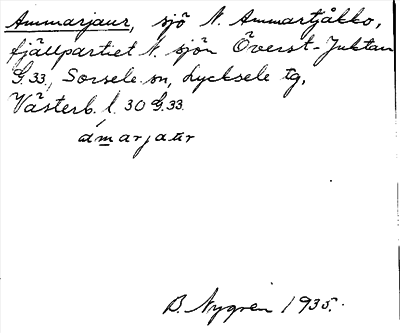 Ammarjaur, sjö N. Ammartjåkko,
fjällpartiet N. sjön Överst-Juktan
G.33, Sorsele sn, Lycksele tg,
Västerb. l. 30 G.33.
ámarjaur
B. Nygren 1935.